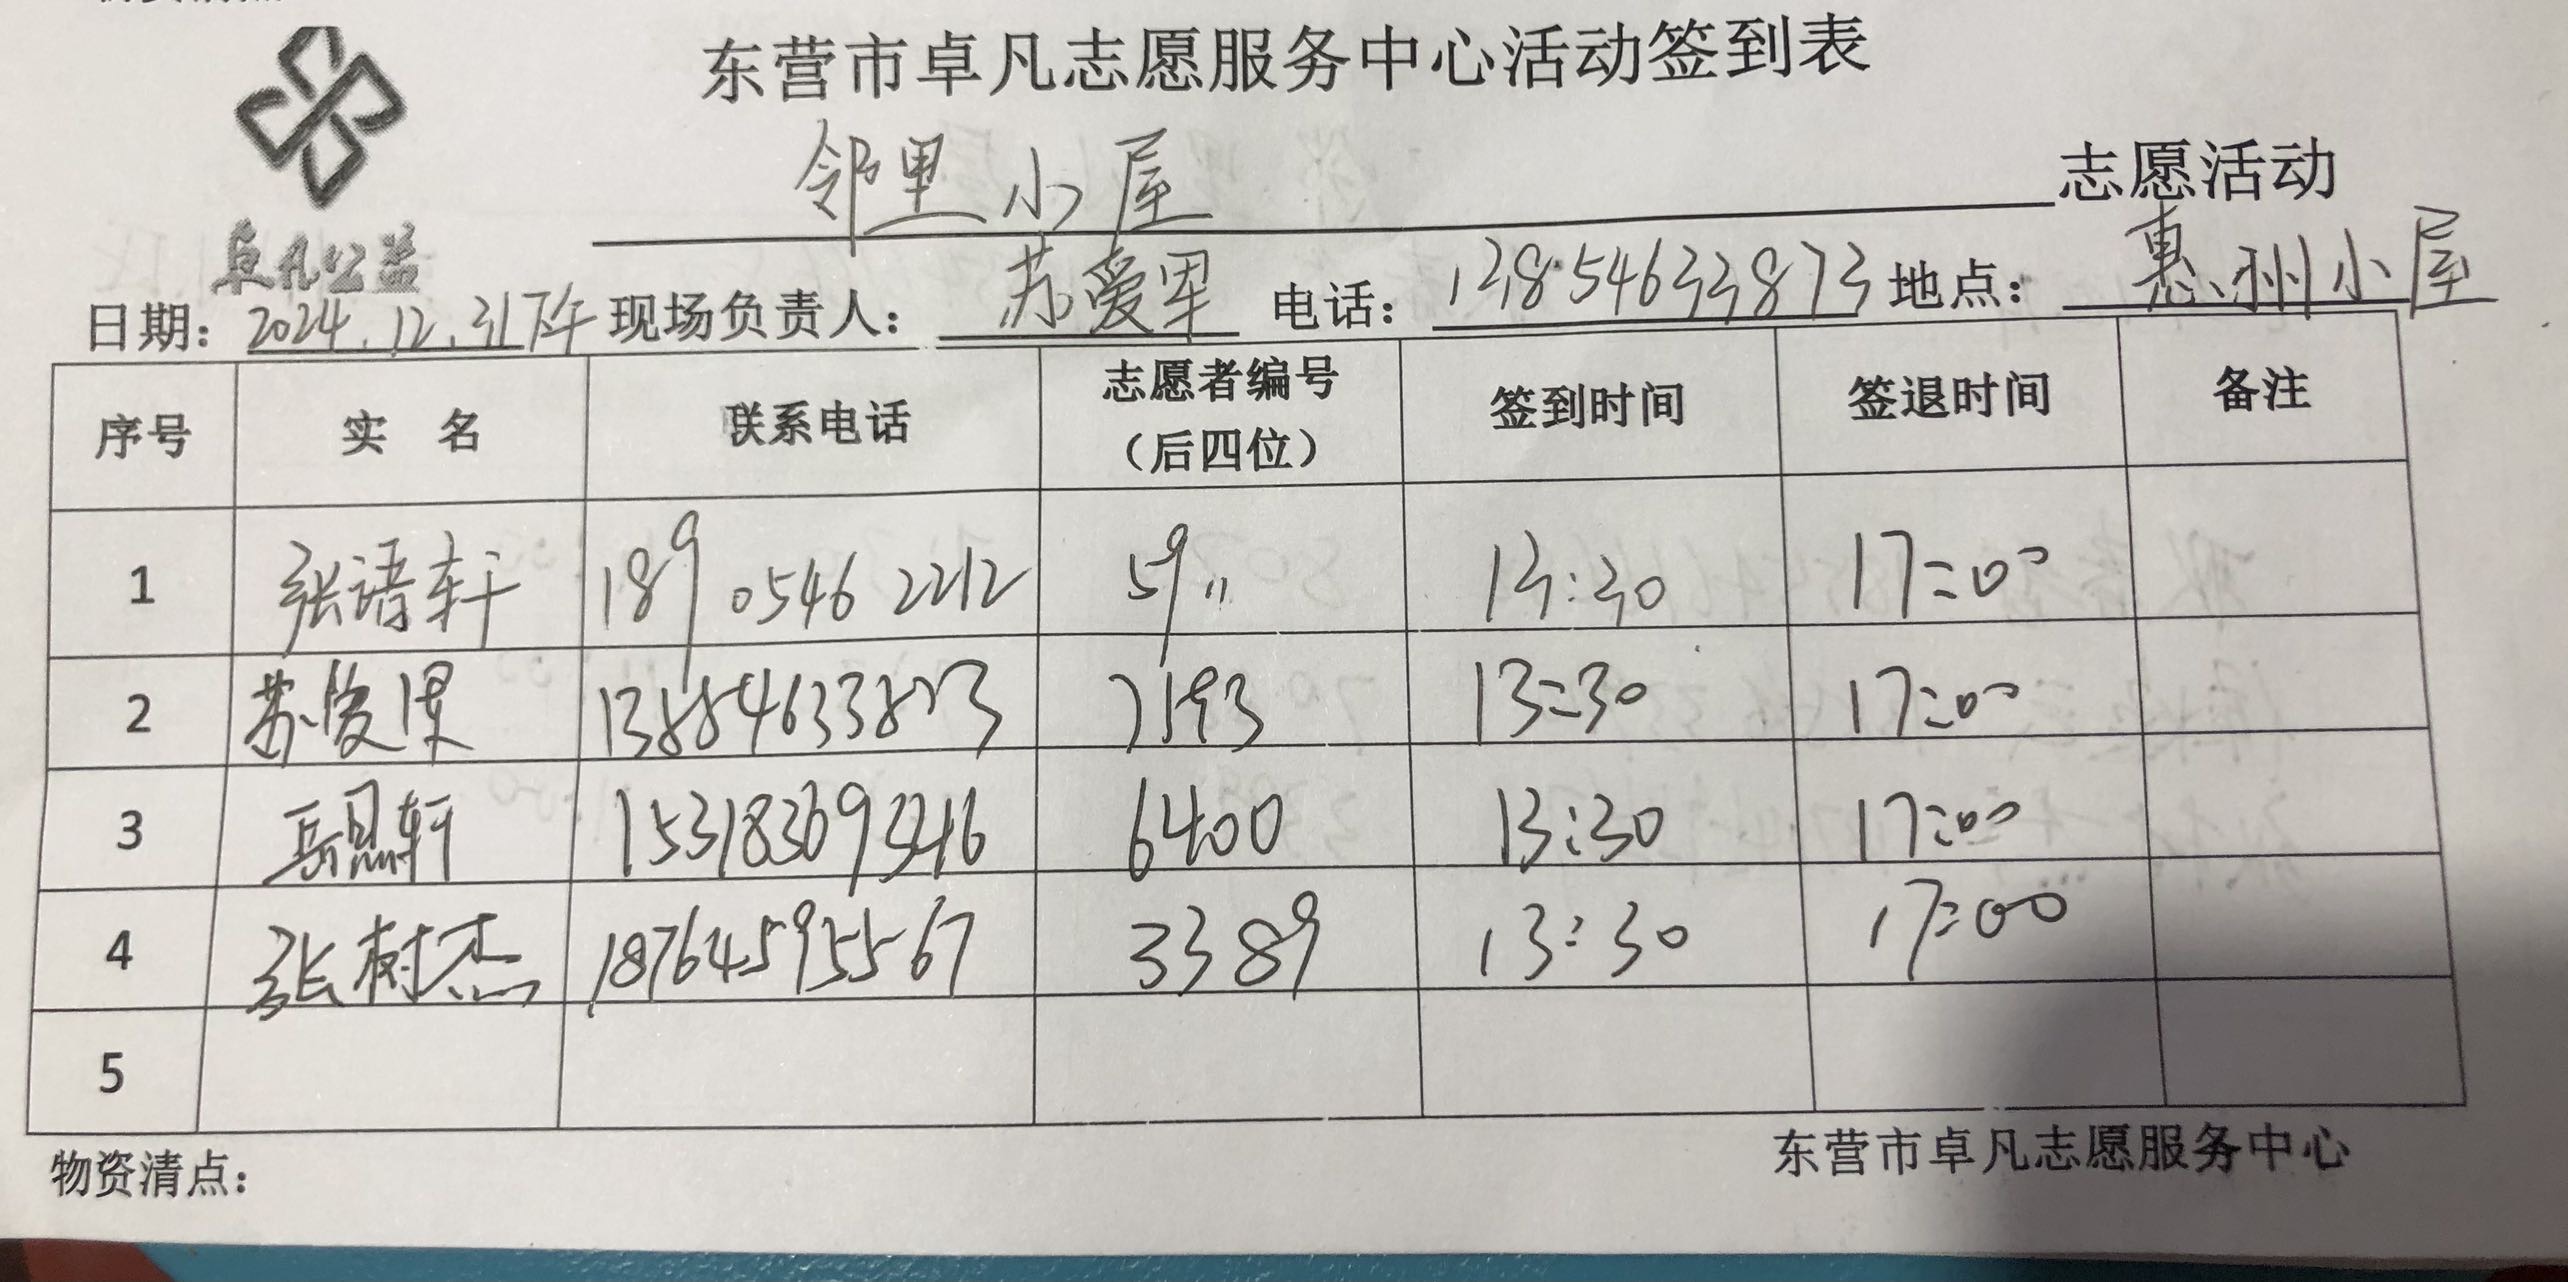 东营市卓凡志愿服务中心活动签到表
邻里小屋 志愿活动
卓凡公益
日期：2024.12.31下午 现场负责人：苏爱军 电话：13854633873 地点：惠州小屋
序号 实 名 联系电话 志愿者编号（后四位） 签到时间 签退时间 备注
1 张语轩 18905462212 5911 13:30 17:00
2 苏俊 7193 13:30 17:00
3 岳恩轩 15318369346 6400 13:30 17:00
4 张树杰 18764595567 3389 13:30 17:00
5
物资清点：
东营市卓凡志愿服务中心